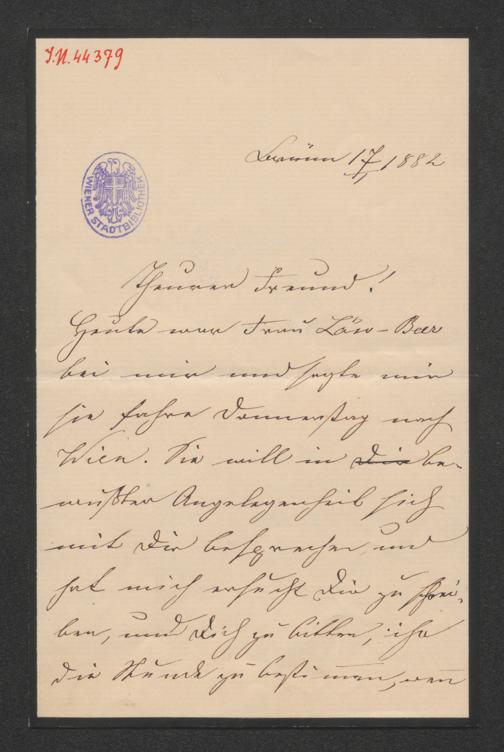 I.N. 44379
Brünn 17/II 1882
WIENER STADTBIBLIOTHEK
Theurer Freund!
Heute war Frau Löw-Beer
bei mir und sagte mir
sie fahre Donnerstag nach
Wien. Sie will in die be-
wußter Angelegenheit sich
mit Dir besprechen und
hat mich ersucht Dir zu schrei-
ben, und Dich zu bitten, ihr
die Stunde zu bestimmen, wenn